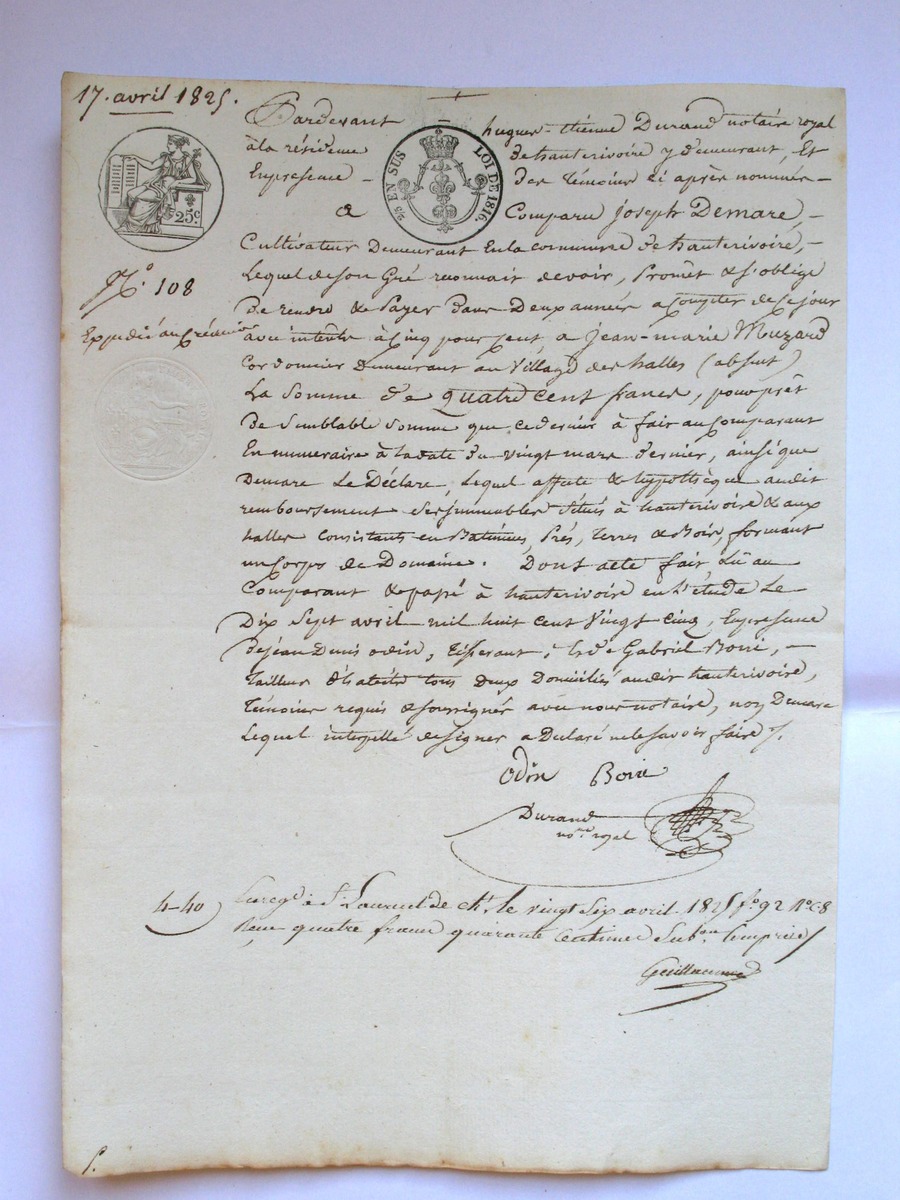 17. avril 1825.
Pardevant hugues-étienne Durand notaire royal
à la résidence de hauterivoire y demeurant, Et
En presence des témoins ci après nommés
EN SUS LOI DE 1816.
25c
a Comparu Joseph Demare,
Cultivateur Demeurant En la commune de hauterivoire,
N.° 108
Lequel de son Gré reconnait devoir, Promet & s'oblige
De rendre & Payer Dans Deux années a Compter de ce jour
Expédié au Créancier
avec intérêts à Cinq pour cent, a Jean-marie Muzard
Cordonnier Demeurant au Village des halles (absent)
La Somme de quatre cent francs, pour prêt
De Semblable Somme que ce dernier à fait au Comparant
En numeraire à la date du vingt mars dernier, ainsi que
Demare Le Déclare, Lequel affecte & hypothèque audit
remboursement Ses immeubles Situés à hauterivoire & aux
halles Consistants en Batimens, Prés, Terres & Bois, formant
un Corps de Domaine. Dont acte fait Lû au
Comparant & passé à hauterivoire en L'étude Le
Dix Sept avril mil huit cent Vingt Cinq, En presence
De jean Denis odin, Tisserant, & de Gabriel Boni,
Tailleur d'habits tous Deux Domiciliés audit hauterivoire,
Témoins requis & soussignés avec nous notaire, non Demare
Lequel interpellé de signer a Declaré ne le savoir faire
Odin
Durand
no.re royal
4-40
Enreg.é à S.t Laurent de Ch.t le vingt six avril 1825 f.o 92 R.o C.8
Reçu quatre francs quarante centimes Sub.on Comprise
Guillaume